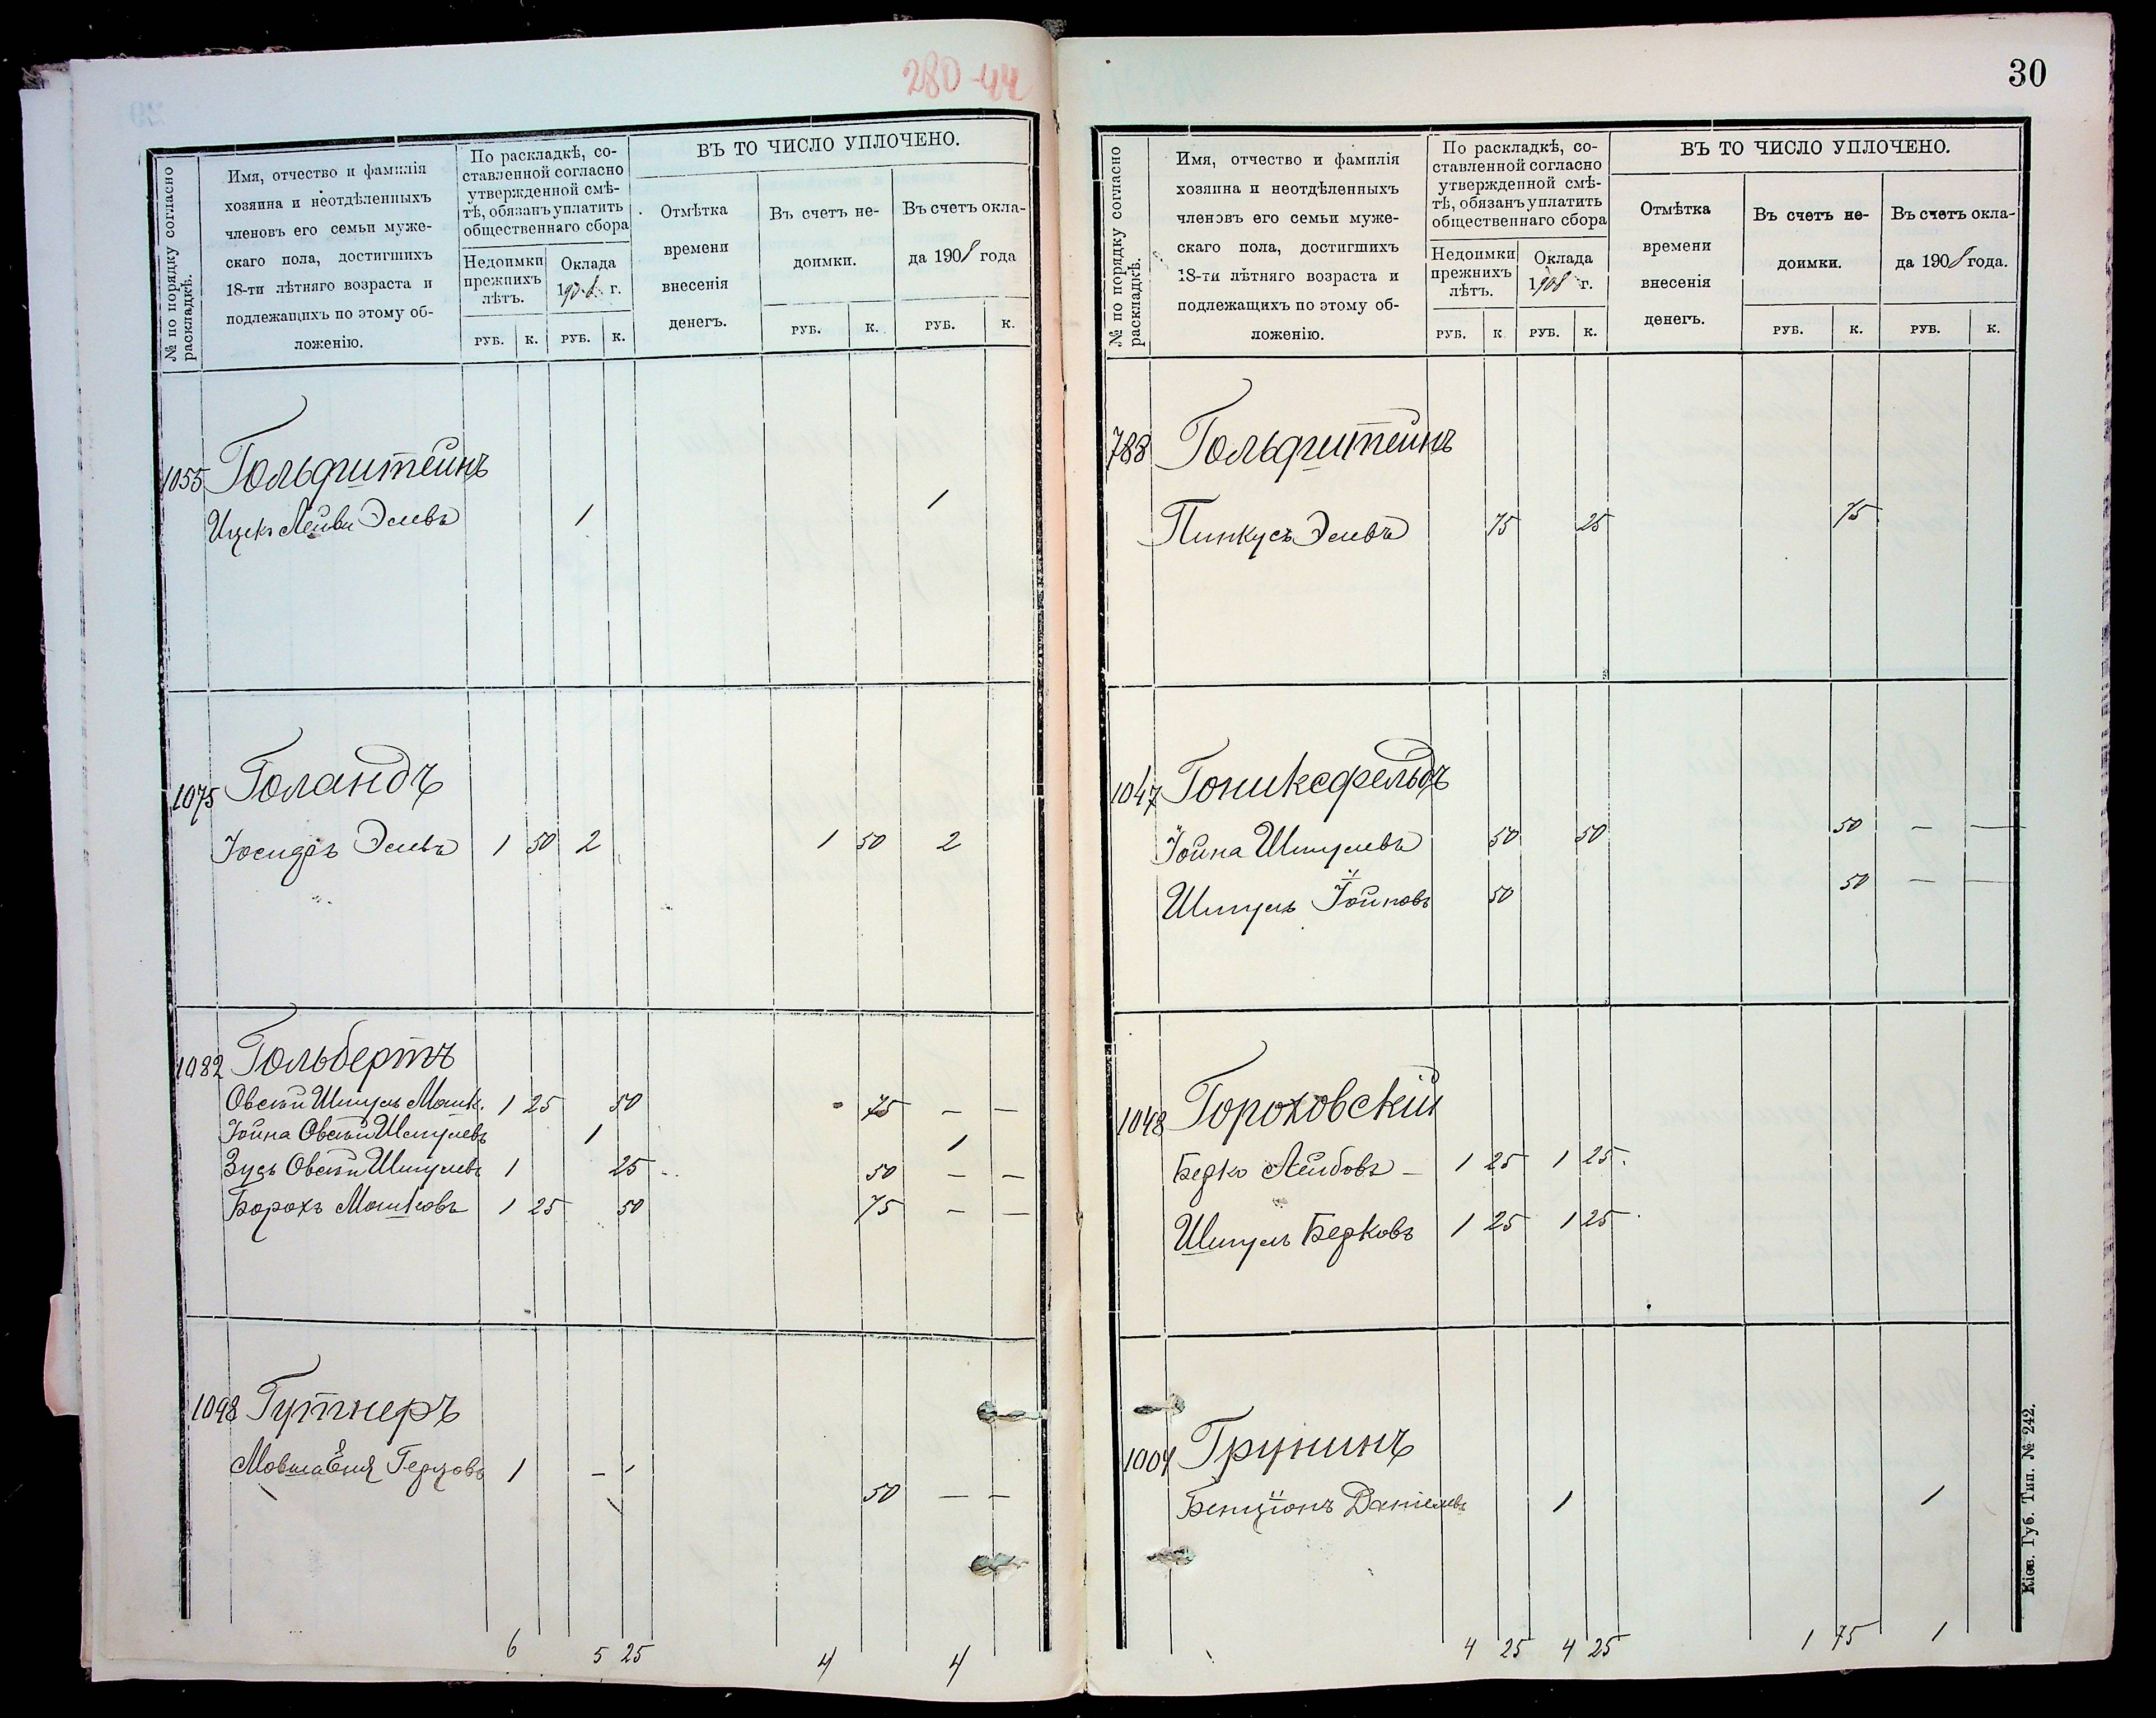 280-44
№ по порядку согласно раскладкѣ.
Имя, отчество и фамилія
хозяина и неотдѣленныхъ
членовъ его семьи муже-
скаго пола, достигшихъ
18-ти лѣтняго возраста и
подлежащихъ по этому об-
ложенію.
По раскладкѣ, со-
ставленной согласно
утвержденной смѣ-
тѣ, обязанъ уплатить
общественнаго сбора
Недоимки
прежнихъ
лѣтъ.
Оклада
1908 г.
ВЪ ТО ЧИСЛО УПЛОЧЕНО.
Отмѣтка
времени
внесенія
денегъ.
Въ счетъ не-
доимки.
Въ счетъ окла-
да 1908 года
РУБ. К. РУБ. К. РУБ. К. РУБ. К.
1055 Гольдштейнъ
Ицекъ Лейви Элевъ 1 1
1075 Голандъ
Іосифъ Элевъ 1 50 2 1 50 2
1082 Гольбертъ
Овсей Шмуль Мошк. 1 25 50 75 — —
Іойна Овсей Шмулевъ 1 1
Зусь Овсей Шмулевъ 1 25 50 — —
Борохъ Мошковъ 1 25 50 75 — —
1098 Гутнеръ
Мовша Герцовъ 1 — 50 — —
6 5 25 4 4
30
№ по порядку согласно раскладкѣ.
Имя, отчество и фамилія
хозяина и неотдѣленныхъ
членовъ его семьи муже-
скаго пола, достигшихъ
18-ти лѣтняго возраста и
подлежащихъ по этому об-
ложенію.
По раскладкѣ, со-
ставленной согласно
утвержденной смѣ-
тѣ, обязанъ уплатить
общественнаго сбора
Недоимки
прежнихъ
лѣтъ.
Оклада
1908 г.
ВЪ ТО ЧИСЛО УПЛОЧЕНО.
Отмѣтка
времени
внесенія
денегъ.
Въ счетъ не-
доимки.
Въ счетъ окла-
да 1908 года.
РУБ. К РУБ. К. РУБ. К. РУБ. К.
788 Гольдштейнъ
Пинкусъ Элевъ 75 25 75
1047 Гоникефельдъ
Іойна Шмулевъ 50 50 50 — —
Шмуль Іойновъ 50 50 — —
1048 Гороховскій
Берко Лейбовъ — 1 25 1 25
Шмуль Берковъ 1 25 1 25
1004 Грунинъ
Бенціонъ Даніелевъ 1 1
4 25 4 25 1 75 1
Кіев. Губ. Тип. № 242.